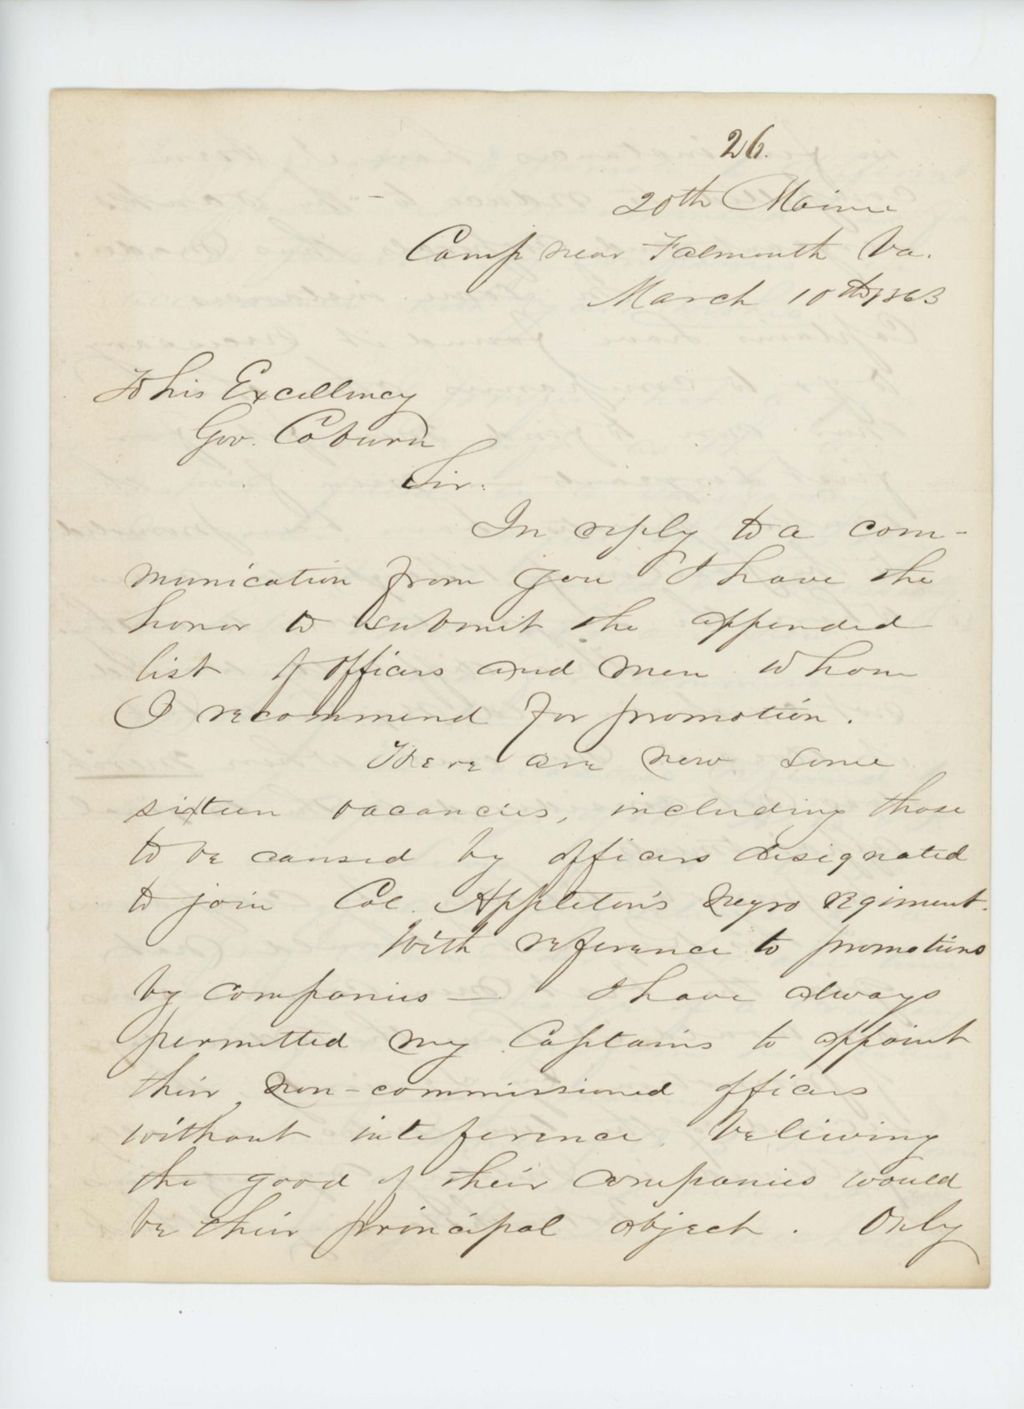 26.
20th Maine
Camp near Falmouth Va.
March 10th 1863
To his Excellency
Gov. Coburn
Sir.
In reply to a com-
munication from you I have the
honor to submit the appended
list of officers and men whom
I recommend for promotion.
There are now some
sixteen vacancies, including those
to be caused by officers designated
to join Col. Appleton's negro regiment.
With reference to promotions
by companies — I have always
permitted my Captains to appoint
their non-commissioned officers
without inteference, believing
the good of their companies would
be their principal object. Only